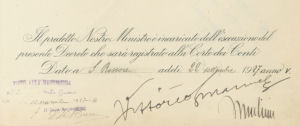 Il predetto Nostro Ministro è incaricato dell'esecuzione del
presente Decreto che sarà registrato alla Corte dei Conti
Dato a S. Rossore addì 20 settembre 1927 anno V.
Vittorio Emanuele
Mussolini